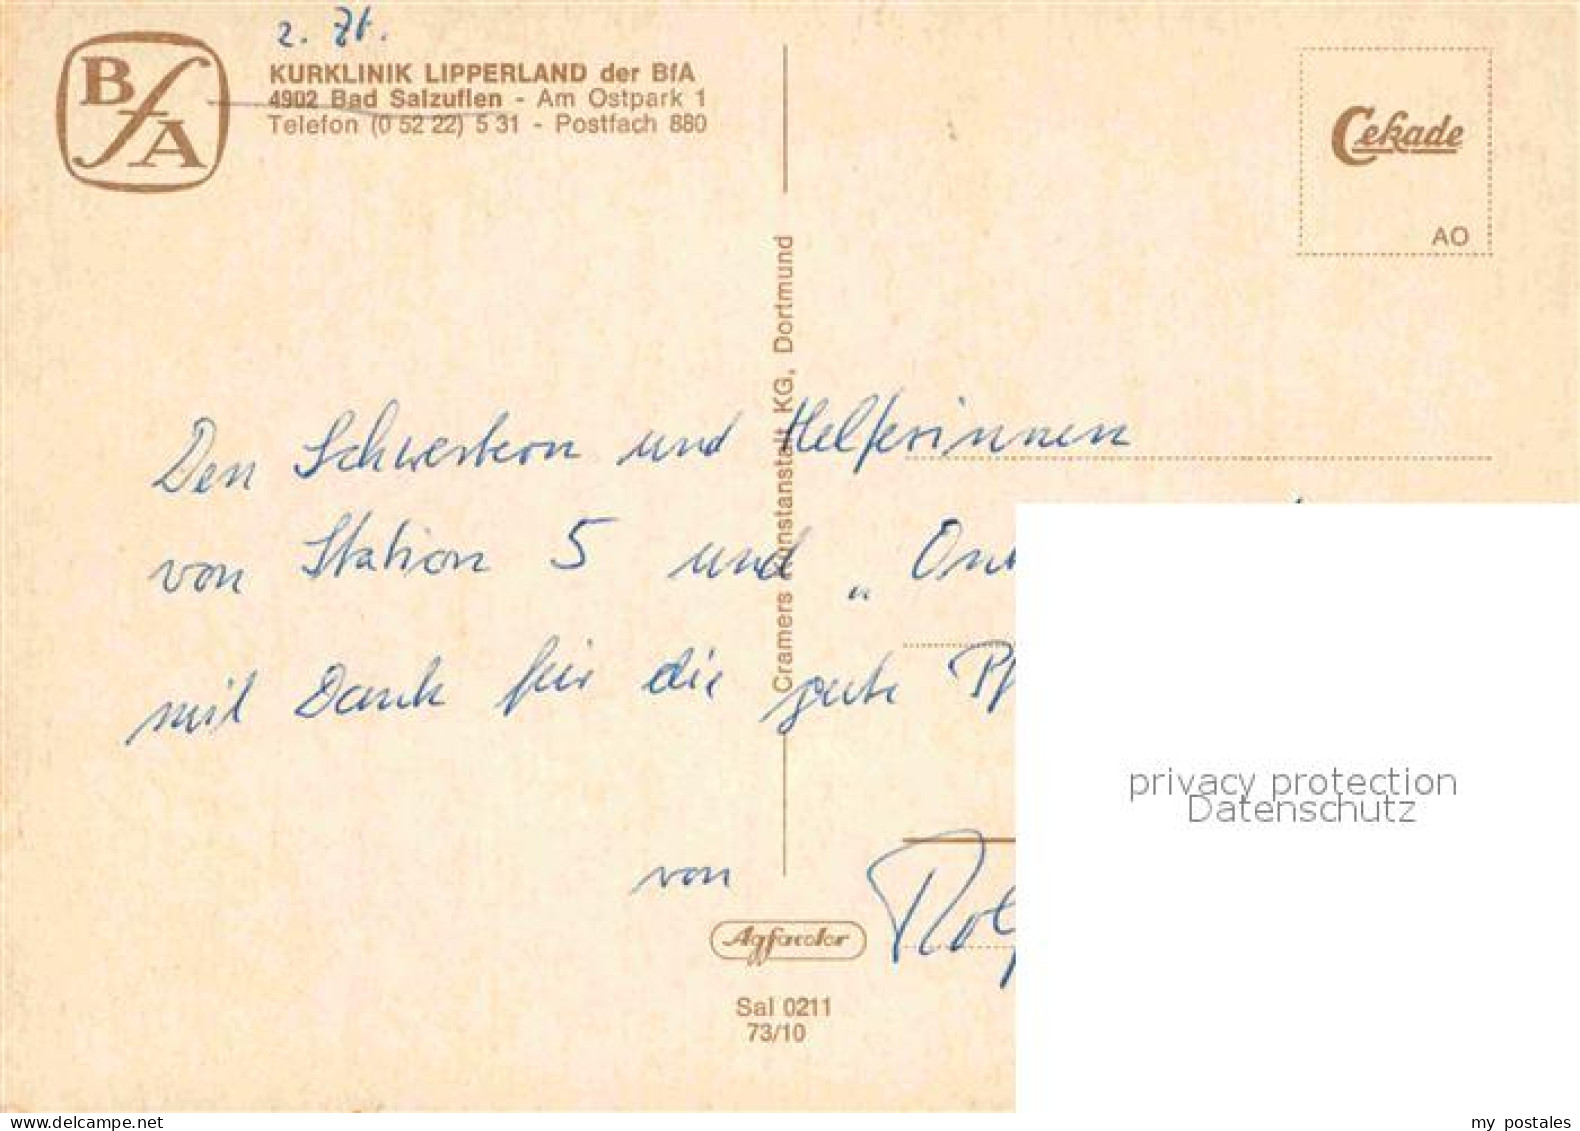 2. Zt.
BfA
KURKLINIK LIPPERLAND der BfA
4902 Bad Salzuflen - Am Ostpark 1
Telefon (0 52 22) 5 31 - Postfach 880
Cekade
AO
Cramers Kunstanstalt KG, Dortmund
Den Schwestern und Helferinnen
von Station 5 und „
mit Dank für die gute
von
Agfacolor
Sal 0211
73/10
privacy protection
Datenschutz
my postales